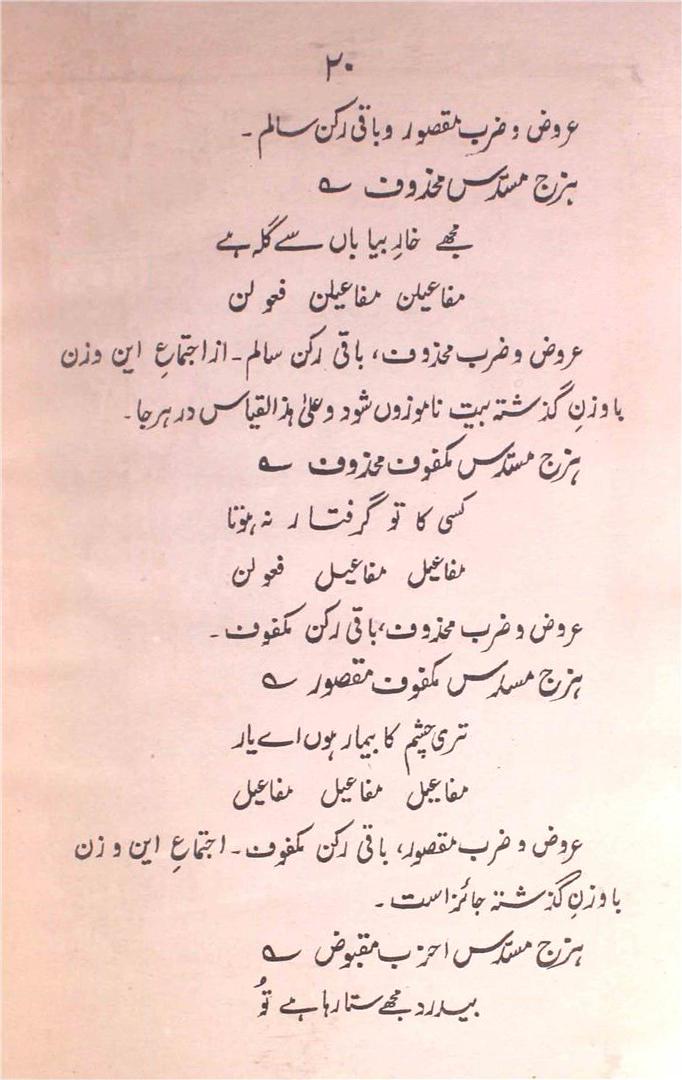 ۲۰
عروض و ضرب مقصور و باقی رکن سالم۔
ہزج مسدس محذوف ؎
مجھے خارِ بیاباں سے گلہ ہے
مفاعیلن مفاعیلن فعولن
عروض و ضرب محذوف، باقی رکن سالم۔ از اجتماعِ این وزن
با وزنِ گذشتہ بیت ناموزوں شود و علیٰ ہذالقیاس در ہر جا۔
ہزج مسدس مکفوف محذوف ؎
کسی کا تو گرفتار نہ ہوتا
مفاعیل مفاعیل فعولن
عروض و ضرب محذوف، باقی رکن مکفوف۔
ہزج مسدس مکفوف مقصور ؎
تری چشم کا بیمار ہوں اے یار
مفاعیل مفاعیل مفاعیل
عروض و ضرب مقصور، باقی رکن مکفوف۔ اجتماعِ این وزن
با وزنِ گذشتہ جائز است۔
ہزج مسدس اخرب مقبوض ؎
بیدرد مجھے ستا رہا ہے تُو